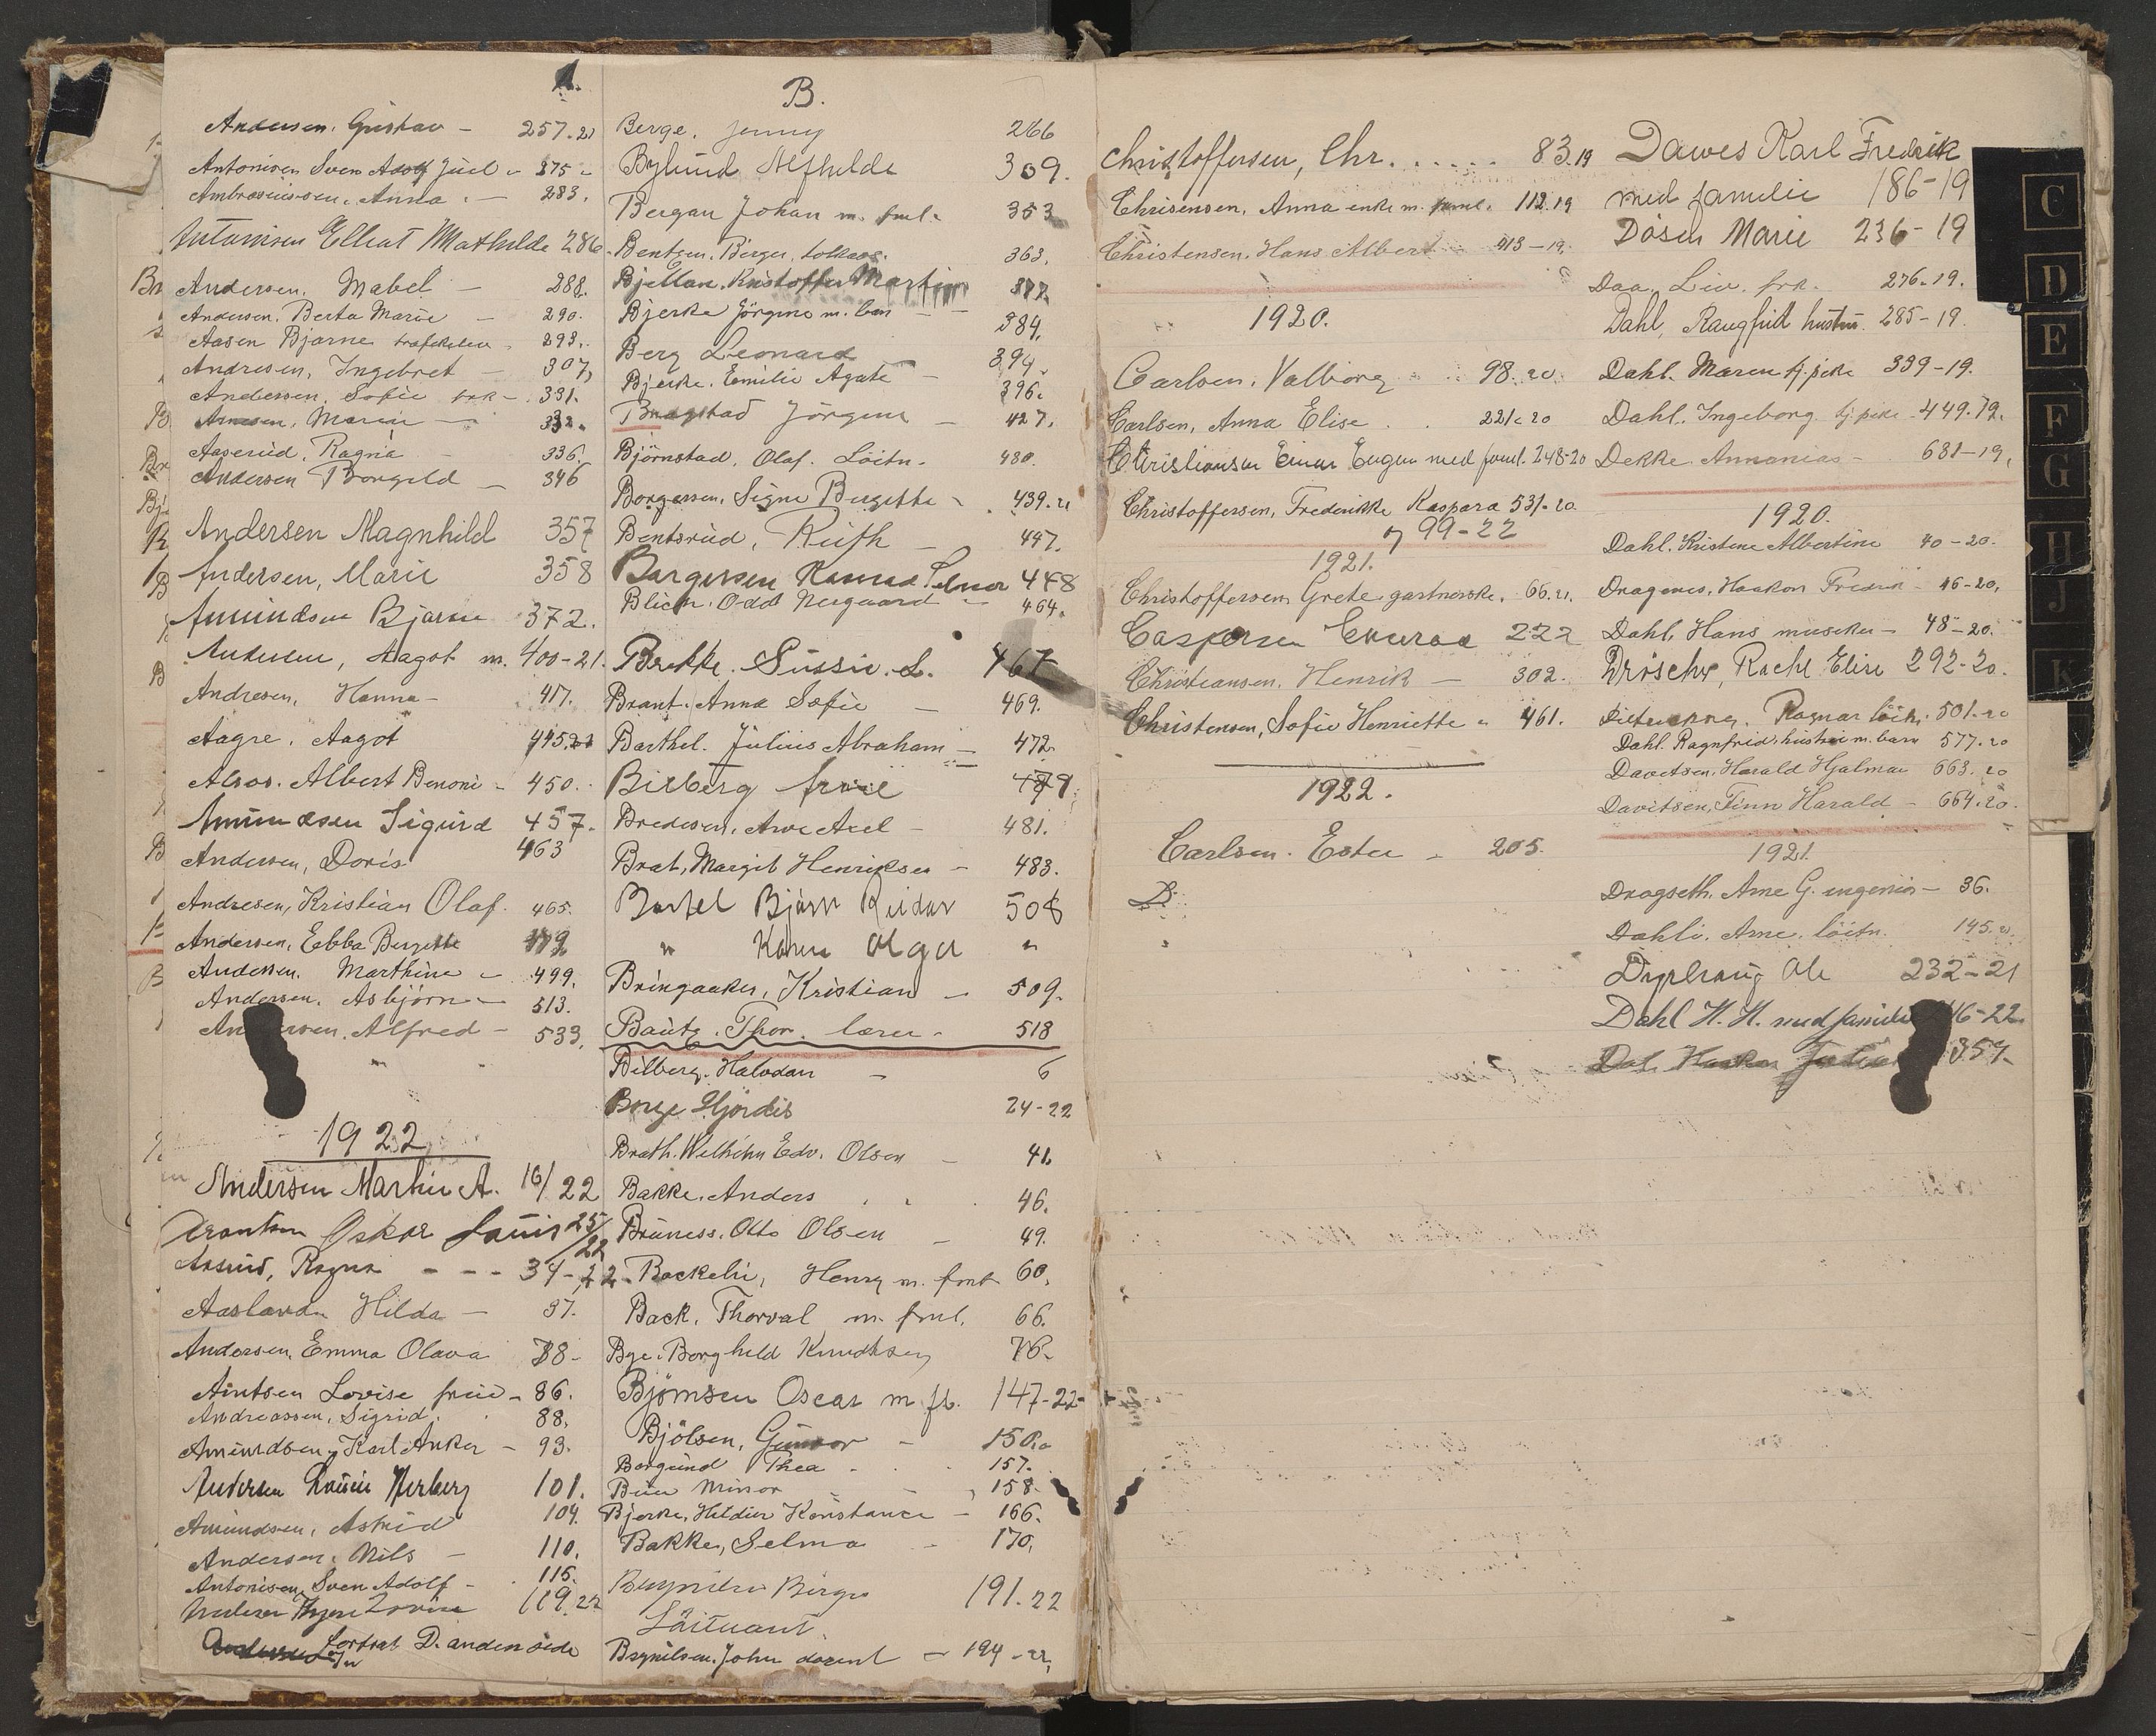 A.
Andersen, Gustav - 257.21
Antonisen Sven Adolf Juel - 275 -
Ambrosiussen, Anna - 283.
Mathilde 286.
Andersen, Mabel - 288.
Andersen, Berta Marie - 290.
Aasen Bjarne - 293.
Andresen, Ingebret - 307,
Andersen, Sofie frk - 331.
Arnesen, Marie - 332.
Aaserud, Ragna - 336.
Andersen Borgeld - 346
Andersen Magnhild 357
Andersen, Marie 358
Amundsen Bjarne 372.
Andersen, Aagot m. 400-21.
Andresen, Hanna - 417.
Aagre, Aagot 445.21
Alsos. Albert Benoni - 450.
Amundsen Sigurd 457.
Andersen, Doris 463
Andresen, Kristian Olaf. 465.
Andersen, Ebba Bergitte 479
Andersen, Marthine - 499.
Andersen, Asbjørn - 513.
Andersen, Alfred - 533.
1922
Andersen Martin A. 16/22
Oskar Louis 25/22
Aaserud, Ragna - - - 34-22
Aaslanda Hilda - 37.
Andersen, Emma Olava 78-
Arntsen Lovise frue - 86.
Andreassen, Sigrid. 88.
Amundsen, Karl Anker - 93.
Andersen 101.
Amundsen, Astrid 104.
Andersen, Nils - 110.
Antonisen, Sven Adolf - 115.
119.22
Fortsat D. anden side
B.
Berge, Jenny 266
Bylund Alfhilde 309.
Bergan Johan m. fml. 353
Bentzen, Birger, 363.
Bjelland, Kristoffer Martin 377.
Bjerke Jørgine m. barn - 384.
Berg Leonard 394.
Bjerke, Emilie Agate - 396.
Bragstad Jørgine - 427.
Bjørnstad, Olaf. Løitn. 430.
Borgersen, Signe Bergitte - 439.21
Bentsrud, Ruth - 447.
Borgersen Konrad 448
Blich, Odd Nergaard - 464.
Brække. Sussie. L. 467
Brant. Anna Sofie - 469.
Barthel. Julius Abraham - 472.
Bilberg frue 479.
Bredesen, Arve Axel - 481.
Brat, Margit Henriksen - 483.
Bartel Bjørn Reidar 508
" Karen Olga "
Bringaaker, Kristian - 509.
Bautz. Thor. lærer - 518
Bilberg. Halvdan - 6
Borge Hjørdis 24-22
Brath. Wilhelm Edv. Olsen - 41.
Bakke, Anders 46.
Bruness. Otto Olsen - 49.
Backelin, Henry m. fml. 60.
Back, Thorval m. fml. 66.
Bye. Borghild Knudtsen 76.
Bjørnsen Oscar m fl. 147-22-
Bjølsen, Gunvor - 150.
Borgund Thea - 157.
Minor - 158.
Bjerke, Konstance - 166.
Bakke, Selma - 170.
Brynildsen Birger 191.22
Løitnant
Brynilsen, John docent - 194-22,
Christoffersen, Chr. . . . . . 83.19
Chrisensen, Anna enke m. faml. 112.19
Christensen, Hans Albert - 413-19.
1920.
Carlsen, Valborg 98.20
Carlsen, Anna Elise . . 221-20
Christiansen Einar Eugen med faml. 248-20
Christoffersen, Frederikke Kaspara 531-20.
99-22
1921.
Christoffersen, Grete gartnerske, 66.21.
Caspersen 222
Christiansen, Henrik - 302.
Christensen, Sofie Henriette - 461.
1922.
Carlsen. Ester - 205.
D.
Dawes Karl Fredrik
med familie 186-19
Døsen Marie 236-19
Daa, Liv. frk. 276.19.
Dahl, Raugfrid hustru 285-19.
Dahl. Maren tj.pike 339-19.
Dahl. Ingeborg tj.pike - 449.19.
Dekke Annanias - 681-19,
1920.
Dahl, Kristine Albertine 40-20.
Dragenes, Haakon 46-20,
Dahl, Hans musiker - 48-20.
Drøscher, Rachel Elise 292-20.
Ragnar løitn. 501.20
Dahl. Ragnfrid, hustru m. barn 577.20
Davitsen, Harald Hjalmar 663.20
Davitsen, Finn Harald - 664.20.
1921.
Dragseth, Arne G. ingeniør - 36.
Dahli, Arne, løitn. 145.21.
Diplraug Ole 232-21
Dahl H. H. med familie 46-22.
Dal Haakon 357.
C
D
E
F
G
H
J
K